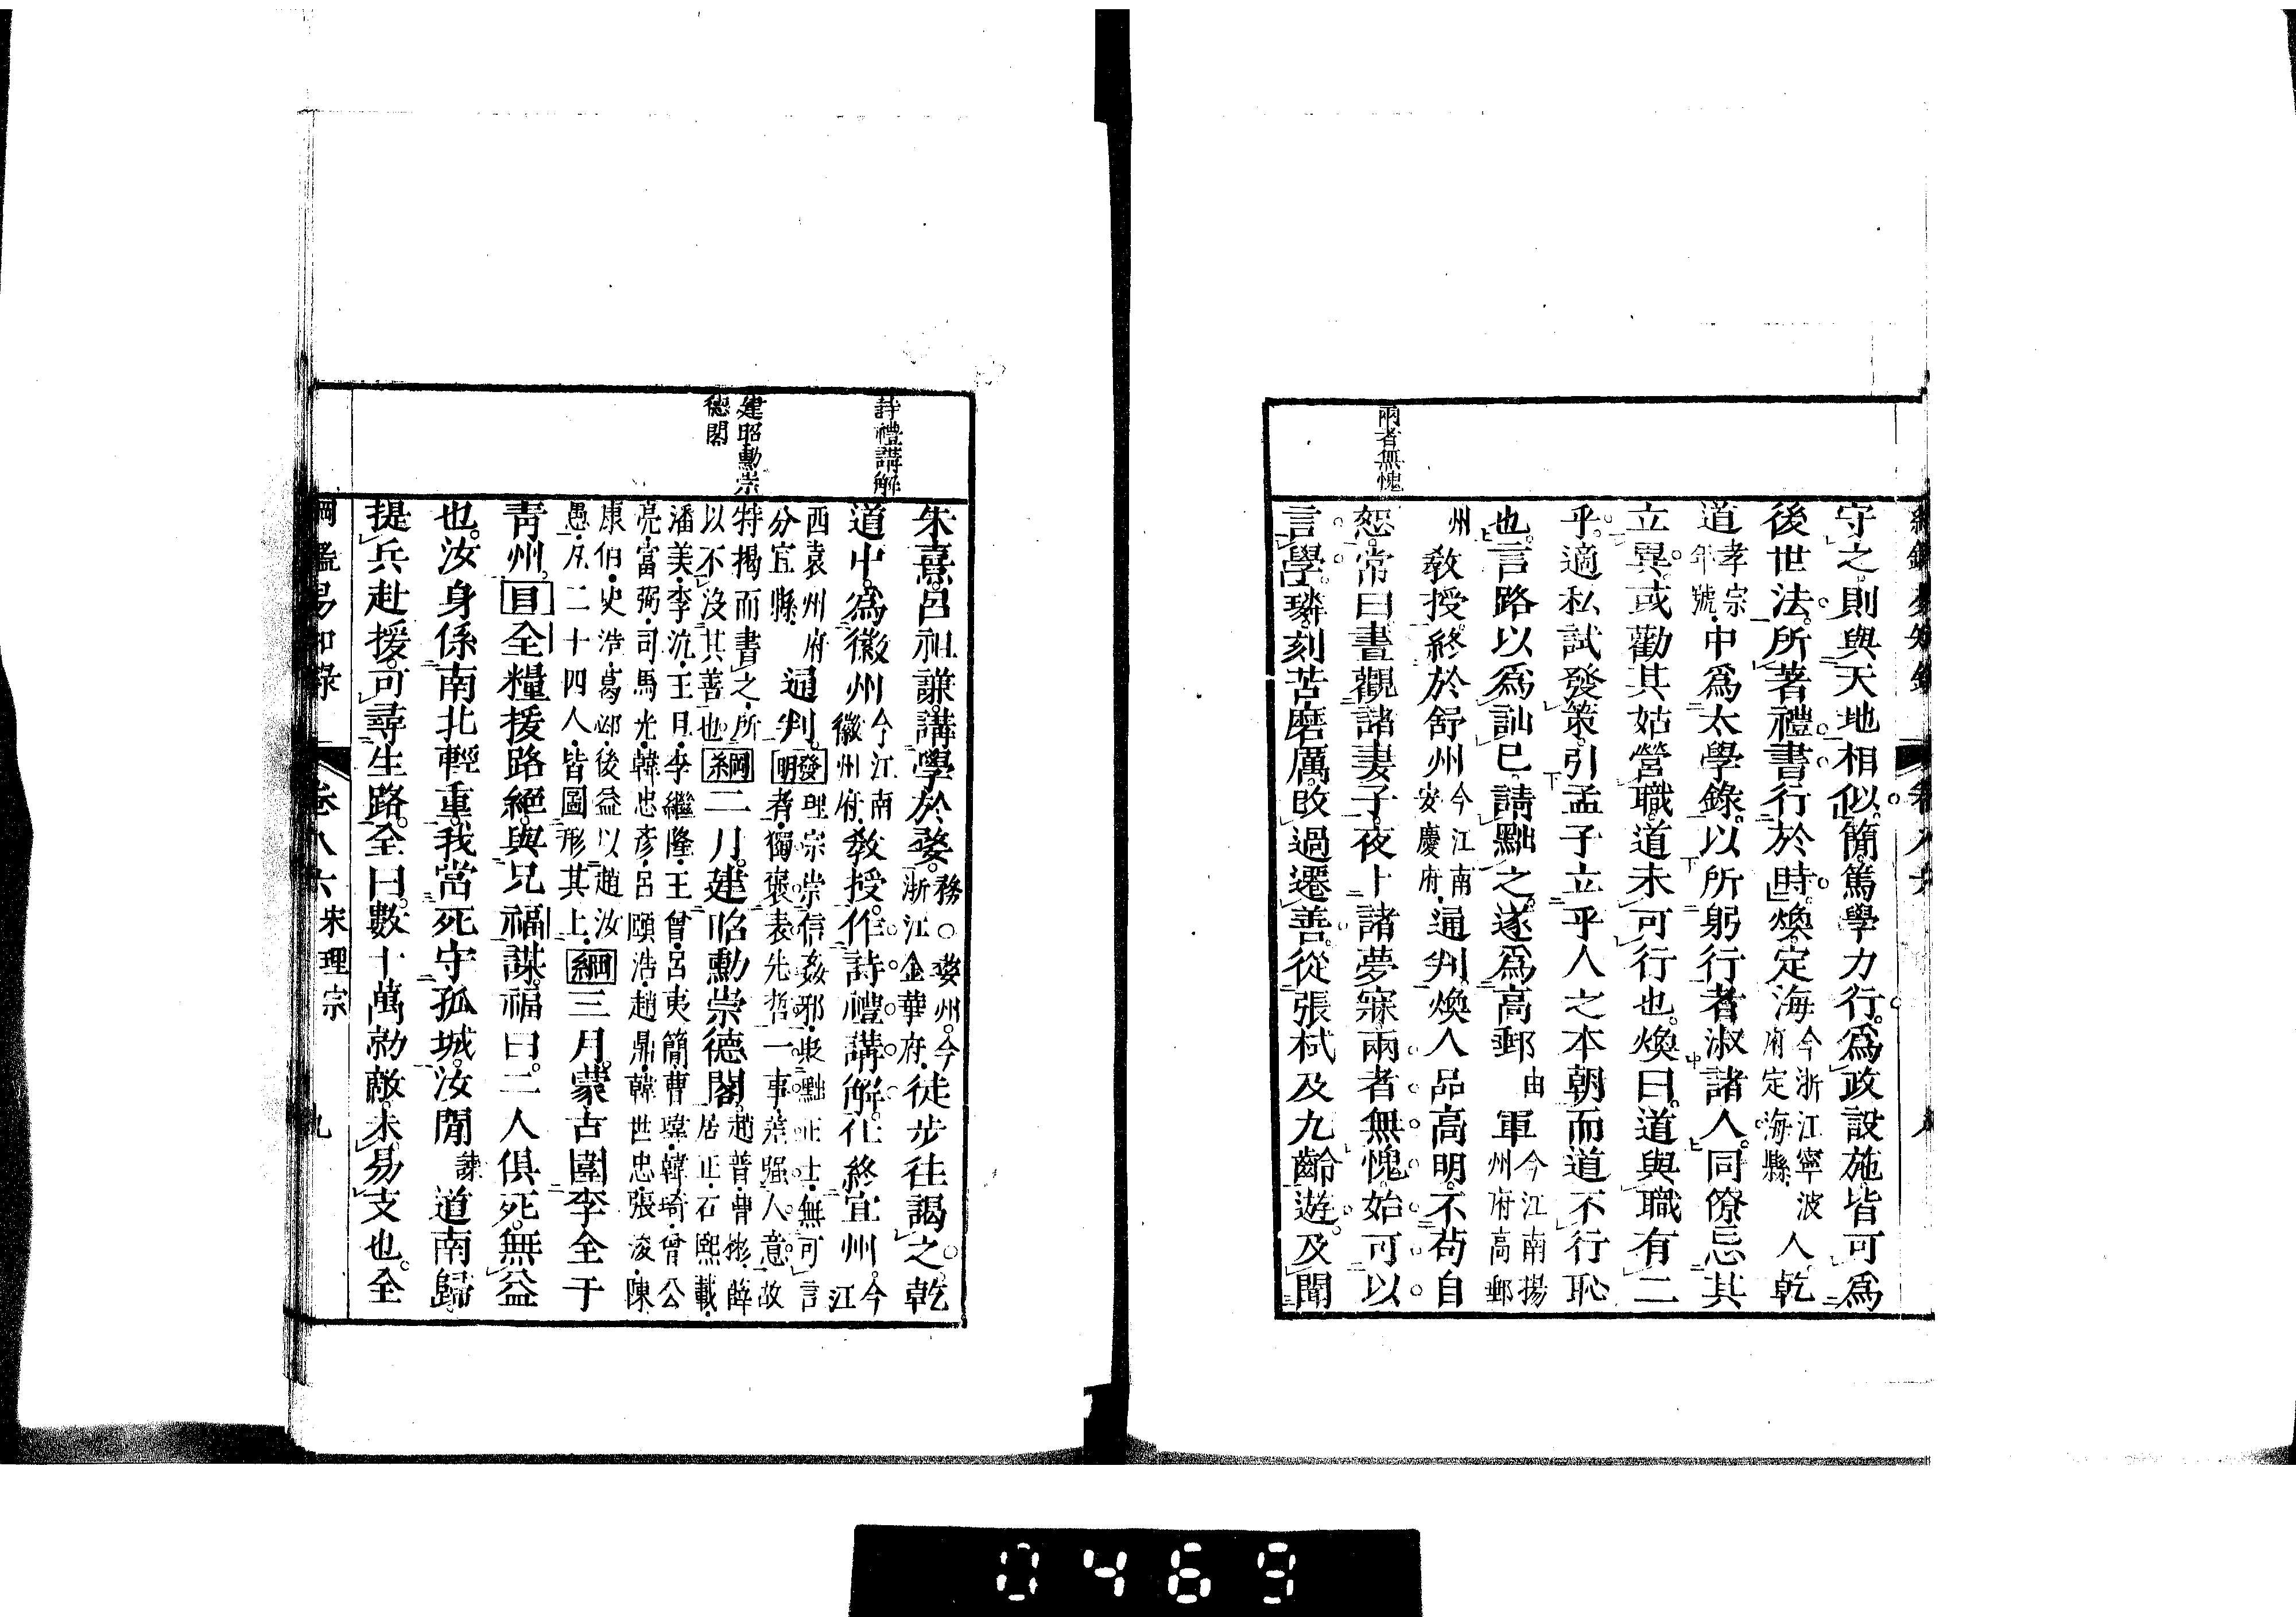 兩者無愧
守之則與天地相似簡篤學力行爲政設施皆可爲
後世法所著禮書行於時煥定海今浙江寧波府定海縣人乾
道孝宗年號中爲太學錄以所躬行者淑諸人同僚忌其
立異或勸其姑營職道未可行也煥曰道與職有二
乎適私試發策引孟子立乎人之本朝而道不行恥
也言路以爲訕已請黜之遂爲高郵由軍今江南揚州府高郵
州教授終於舒州今江南安慶府通判煥人品高明不苟自
恕常曰晝觀諸妻子夜卜諸夢寐兩者無愧始可以
言學璘刻苦磨厲改過遷善從張栻及九齡遊及聞
詩禮講解
建昭勳崇
德閣
朱熹呂祖謙講學於婺務○婺州今浙江金華府徒步往謁之乾
道中爲徽州今江南徽州府教授作詩禮講解仕終宜州今江
西袁州府分宜縣通判發明理宗崇信姦邪衆黜正士無可言者獨褒表先哲一事差强人意故
特揭而書之所以不沒其善也綱二月建昭勳崇德閣趙普曹彬薛居正石熙載
潘美李沆王旦李繼隆王曾呂夷簡曹瑋韓琦曾公亮富弼司馬光韓忠彥呂頤浩趙鼎韓世忠張浚陳
康伯史浩葛邲後益以趙汝愚凡二十四人皆圖形其上綱三月蒙古圍李全于
靑州目全糧援路絕與兄福謀福曰二人俱死無益
也汝身係南北輕重我當死守孤城汝閒諫道南歸
提兵赴援可尋生路全曰數十萬勍敵未易支也全
綱鑑易知錄 卷八六 宋理宗 九
0469